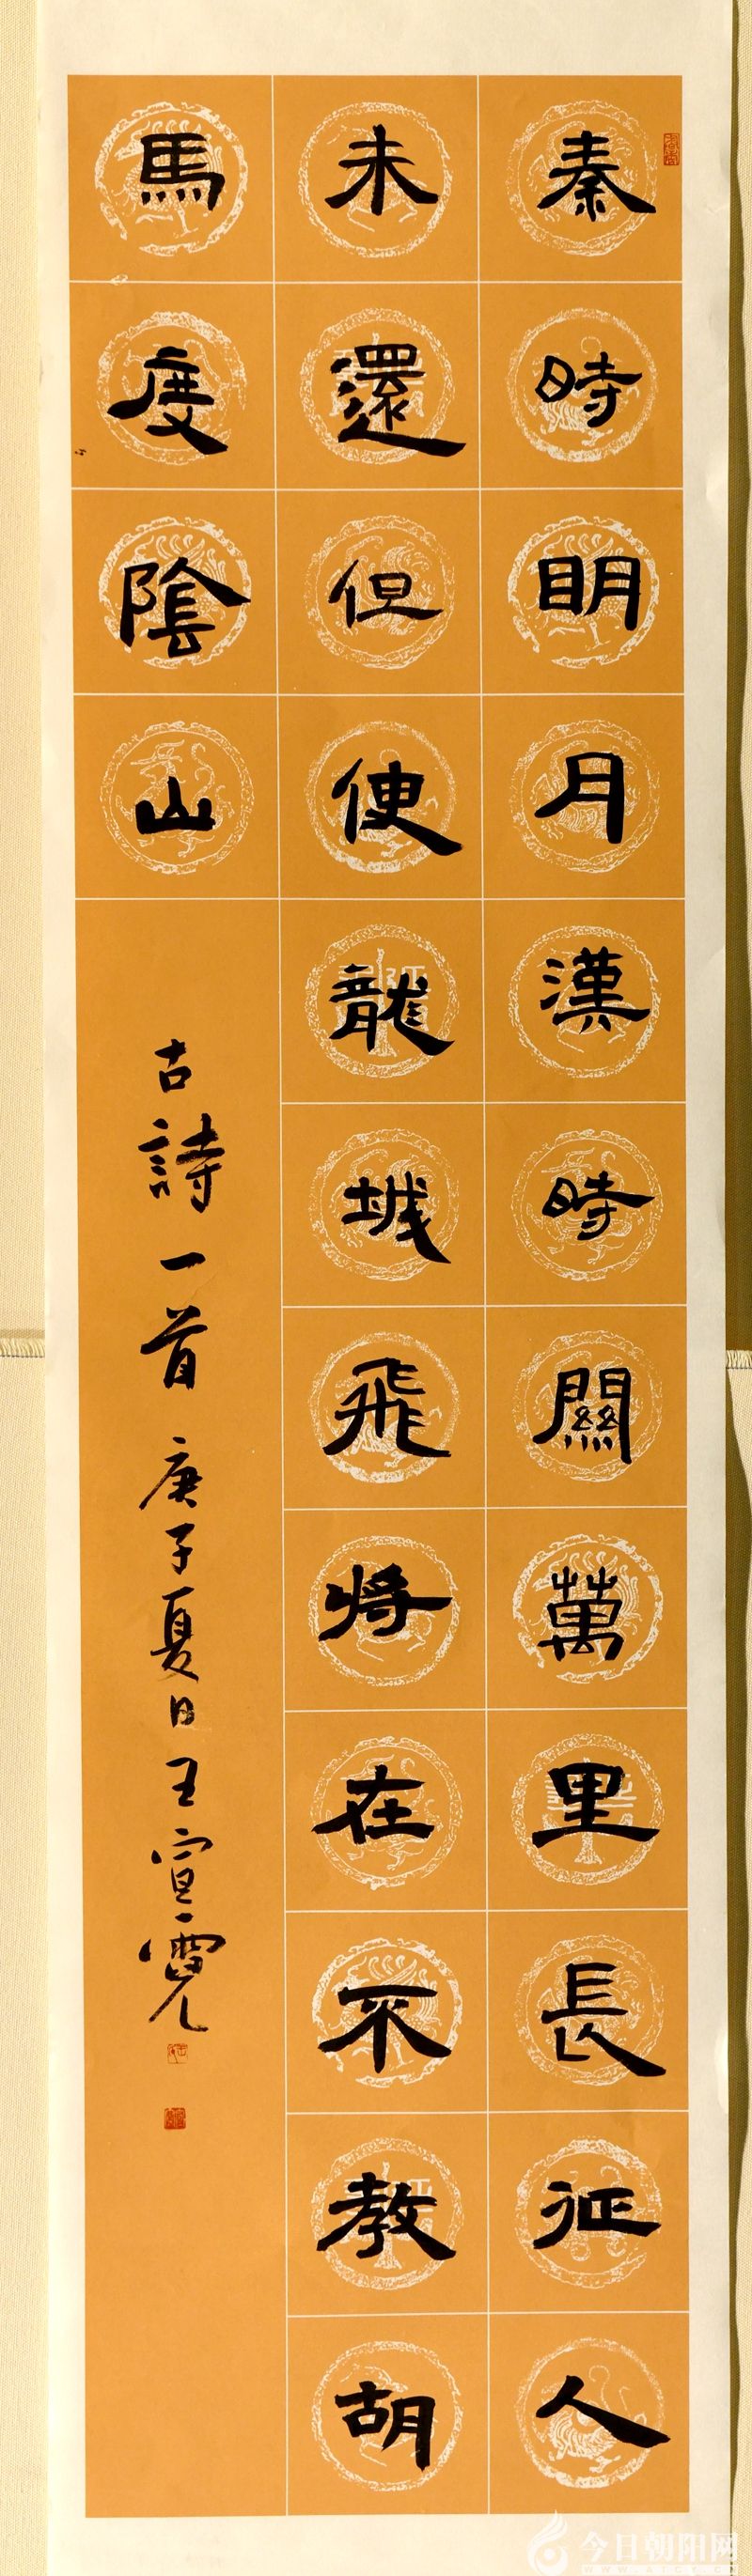 秦時明月漢時關萬里長征人
未還但使龍城飛將在不教胡
馬度陰山
古詩一首 庚子夏日王宣霓
今日朝阳网